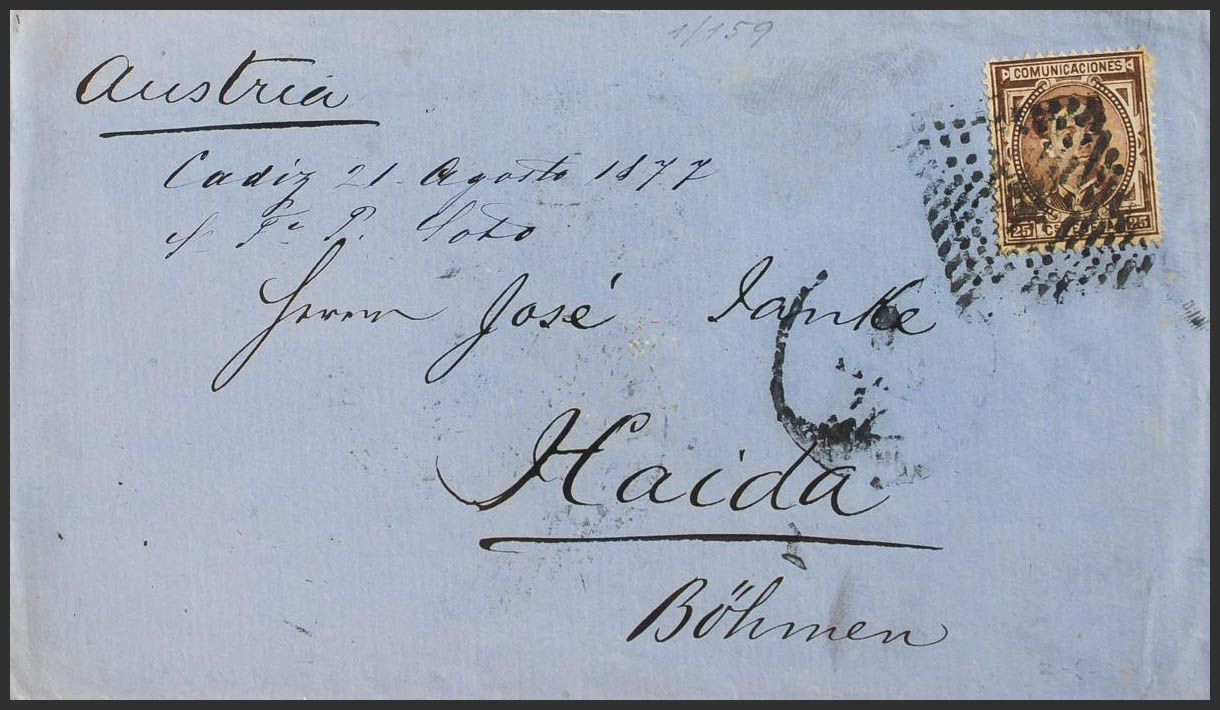 1/159
Austria
COMUNICACIONES
Cadiz 21 Agosto 1877
Fᵃ P. Soto
Herrn José Janke
25 25
Haida
Böhmen